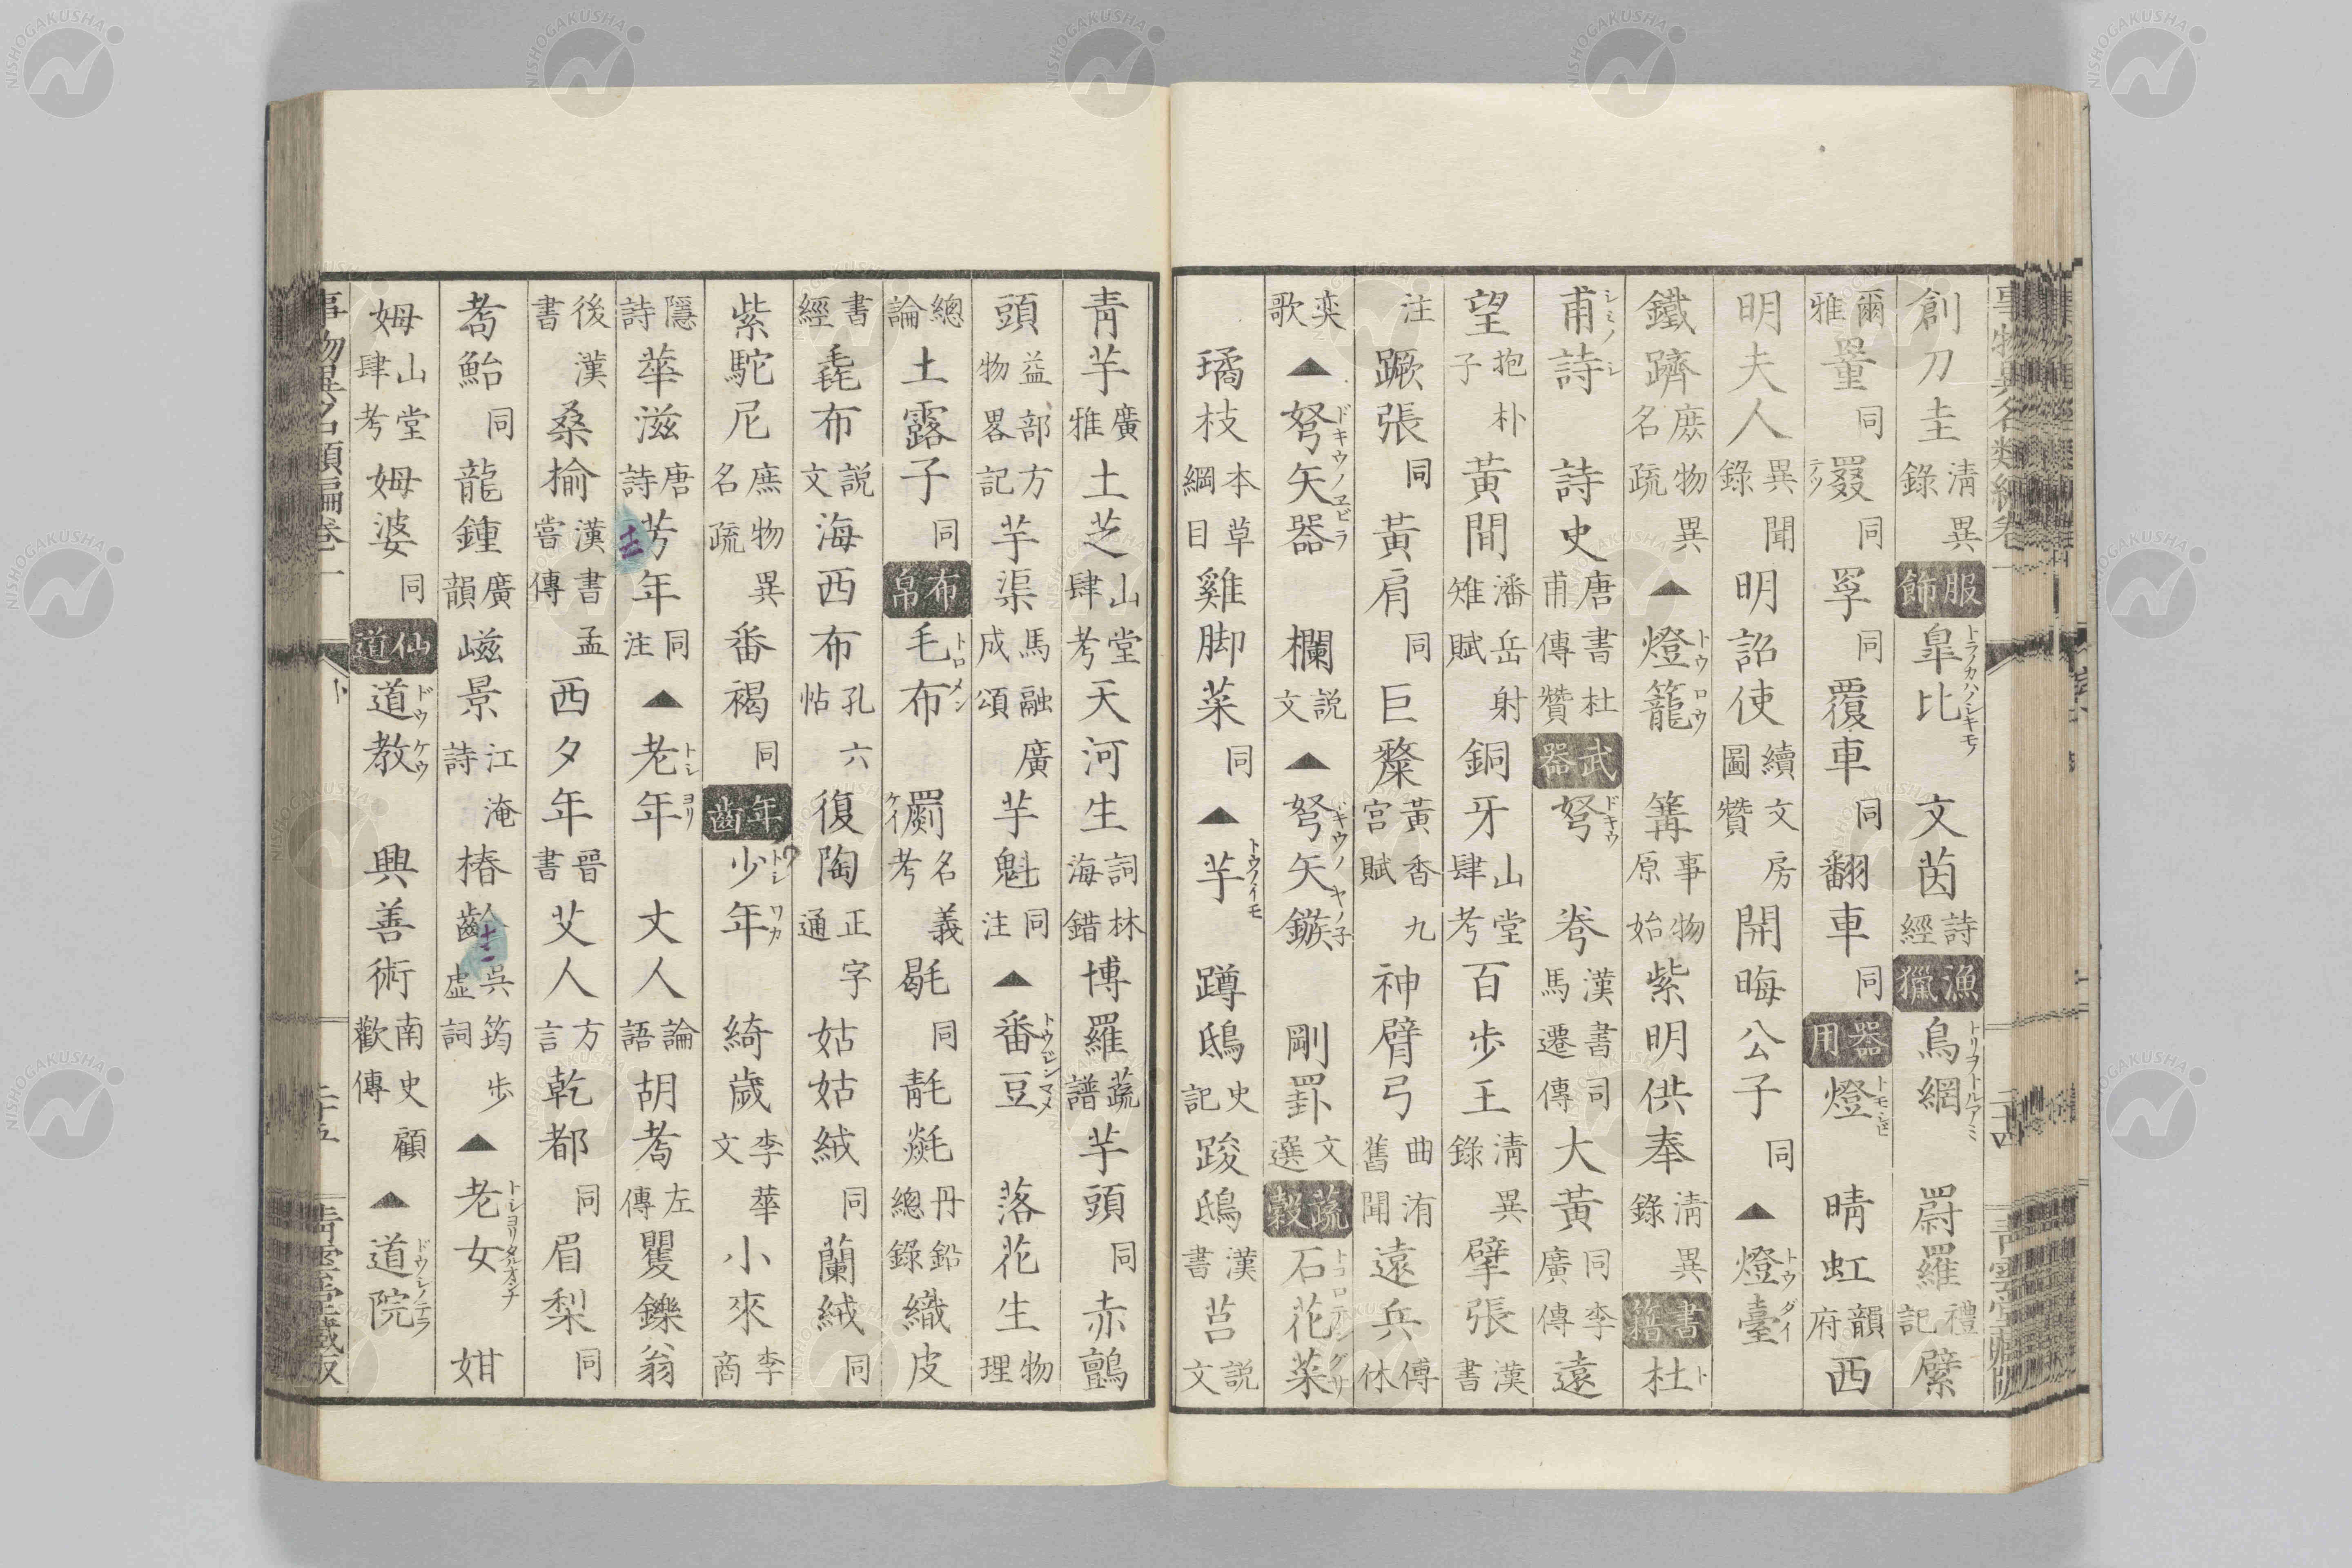 創刀圭清異錄 服飾 皐比トラノカハノシキモノ 文茵詩經 漁獵 鳥網トリヲトルアミ 罻羅禮記 蘩
爾雅 罿同 罬同 罦同 覆車同 翻車同 器用 燈トモシビ 晴虹韻府 西
明夫人異聞錄 明詔使續文房圖贊 開晦公子同 ▲燈臺トウダイ
鐵躋庶物異名疏 ▲燈籠トウロウ 篝事物原始 紫明供奉清異錄 書籍 杜ト
甫シミノシ詩 詩史唐書杜甫傳贊 武器 弩ドキウ 弮漢書司馬遷傳 大黃同李廣傳 遠
望抱朴子 黃間潘岳射雉賦 銅牙山堂肆考 百步王清異錄 擘張漢書
注 蹶張同 黃肩同 巨黍黃香九宮賦 神臂弓曲洧舊聞 遠兵傅休
奕歌 ▲弩矢器ドキウノヱビラ 欄說文 ▲弩矢鏃ドキウノヤノ子 剛罫文選 蔬穀 石花菜トコロテングサ
璚枝本草綱目 雞脚菜同 ▲芋トウノイモ 蹲鴟史記 踆鴟漢書 莒說文
青芋廣雅 土芝山堂肆考 天河生詞林海錯 博羅蔬譜 芋頭同 赤鸇
頭益部方物畧記 芋渠馬融廣成頌 芋魁同注 ▲番豆トウジンマメ 落花生物理
總論 土露子同 布帛 毛布トロメン 罽名義考 毼同 毾㲪丹鉛總錄 織皮
書經 毳布說文 海西布孔六帖 復陶正字通 姑姑絨同 蘭絨同
紫駝尼庶物異名疏 番褐同 年齒 少年トシワカ 綺歲李華文 小來李商
隱詩 華滋唐詩 芳年同注 ▲老年トシヨリ 丈人論語 胡耈左傳 矍鑠翁
後漢書 桑揄漢書孟嘗傳 西夕年晉書 艾人方言 乾都同 眉梨同
耈鮐同 龍鍾廣韻 崦景江淹詩 椿齡吳筠步虛詞 ▲老女トシヨリタルオンナ 姏
姆山堂肆考 姆婆同 仙道 道教ドウケウ 興善術南史顧歡傳 ▲道院ドウシノテラ